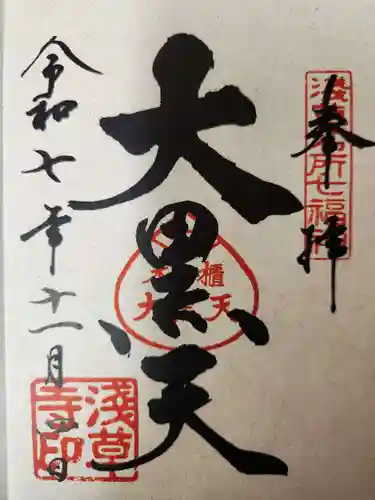 奉拝
浅草名所七福神
大黒天
令和七年十一月四日
浅草
寺印